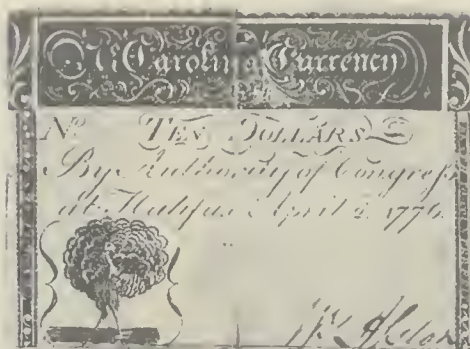 N. Carolina Currency
No. TEN DOLLARS
By Authority of Congress
at Halifax April 2. 1776.